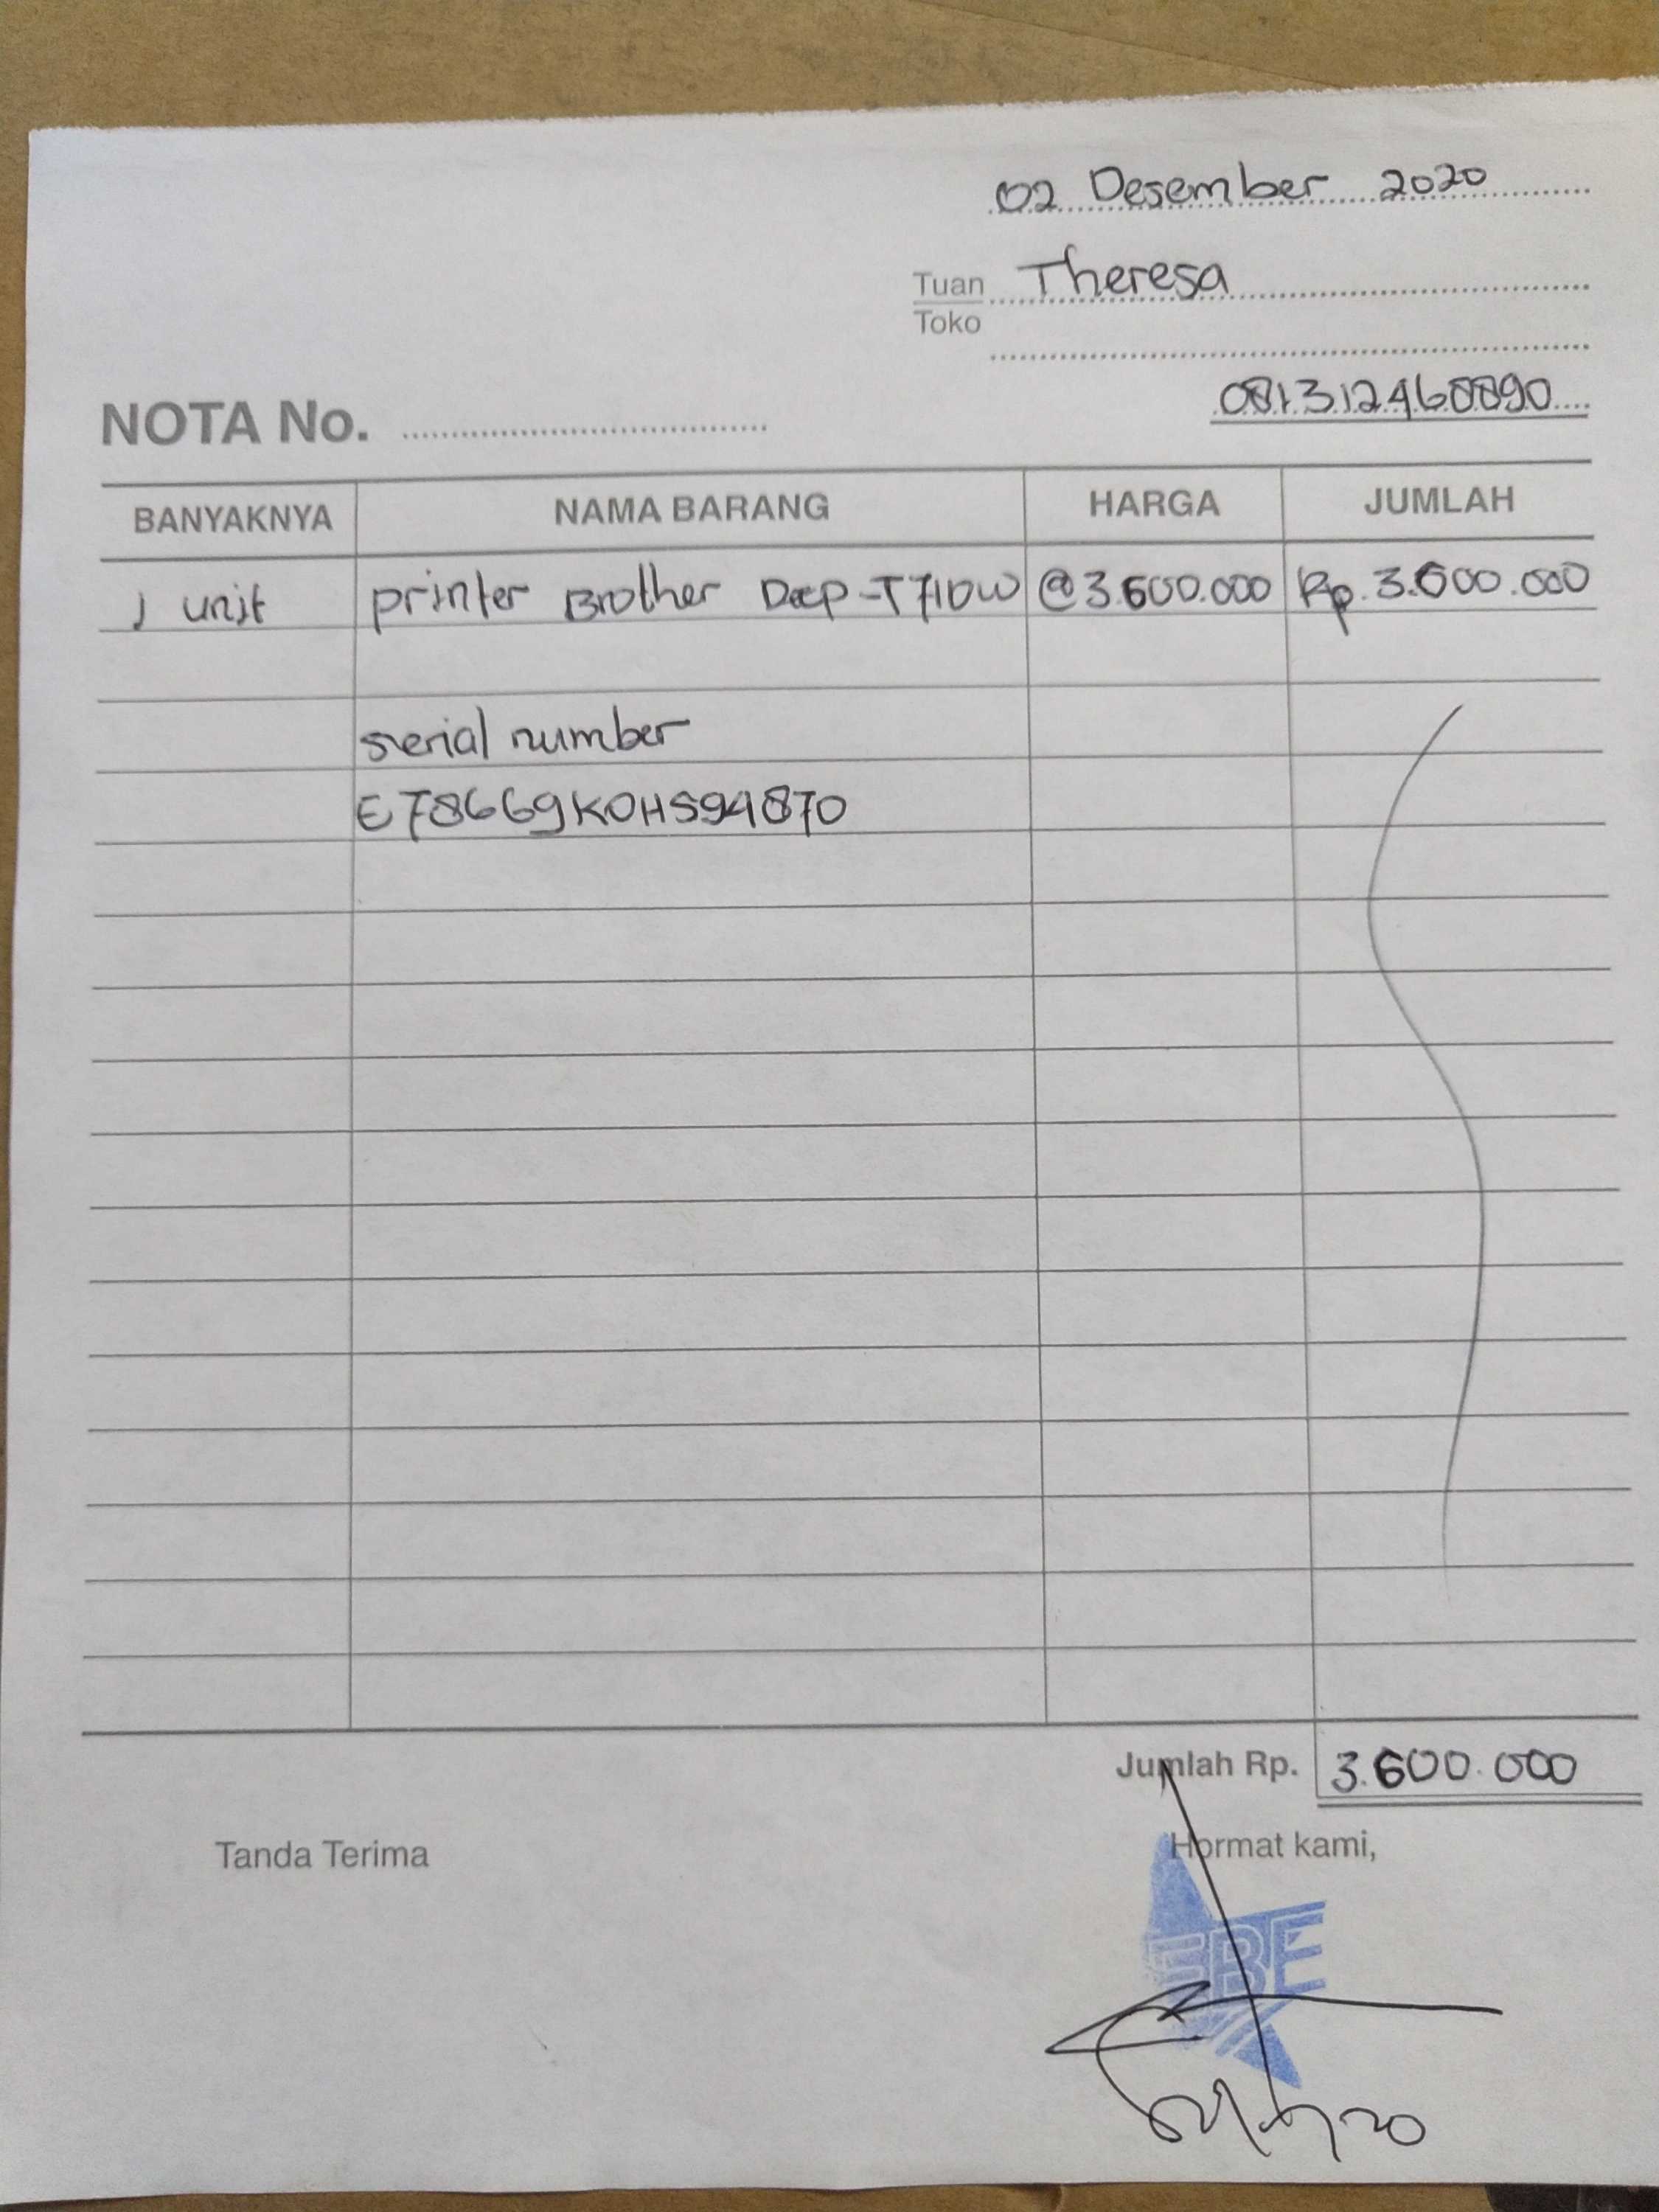 02 Desember 2020
Tuan Theresa
Toko
081312468890
NOTA No.
BANYAKNYA NAMA BARANG HARGA JUMLAH
1 unit printer Brother Dcp-T710W @3.600.000 Rp. 3.600.000
serial number
E78669K0H594870
Jumlah Rp. 3.600.000
Tanda Terima Hormat kami,